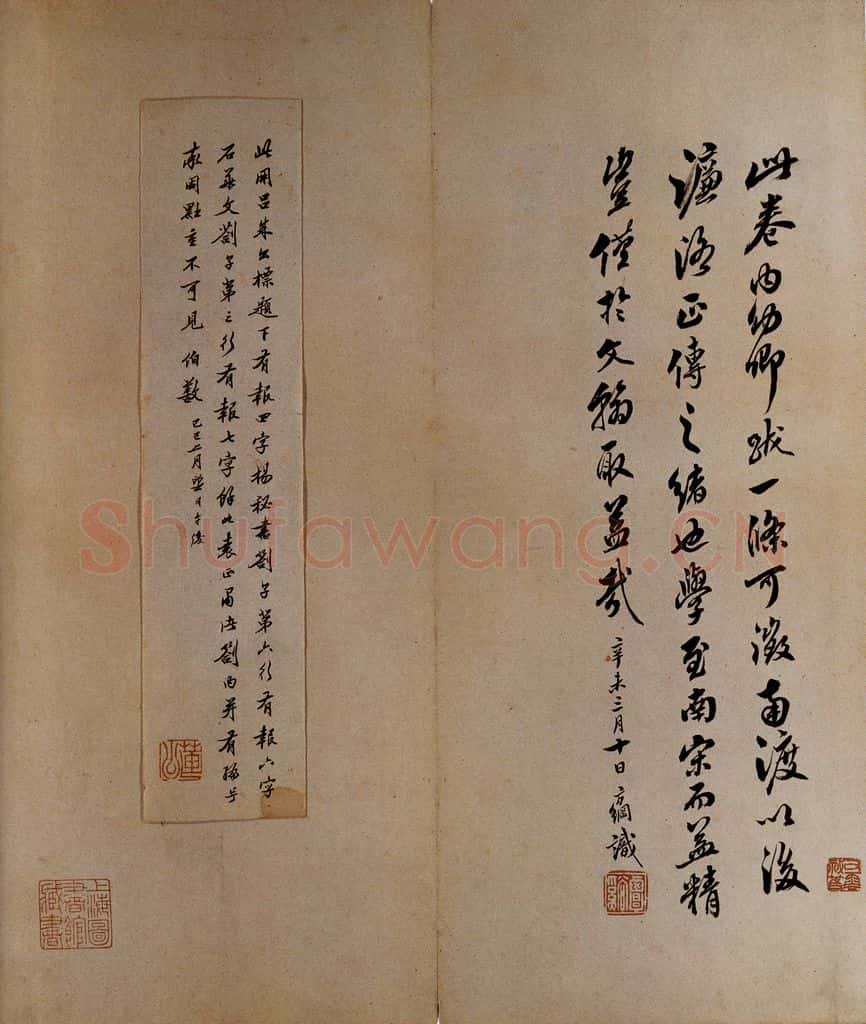 此卷内幼卿跋一條可徵南渡以後
濂洛正傳之緒也學至南宋而益精
豈僅於文翰取益哉 辛未三月十日 方綱識
此用呂 標題下有報四字楊秘書劄子第六行有報六字
石 文劄子第三行有報七字餘 袁正 劄内并有 号
點 不可見 伯
己巳 月 日午後
上海圖書館藏書
Shufawang.cn